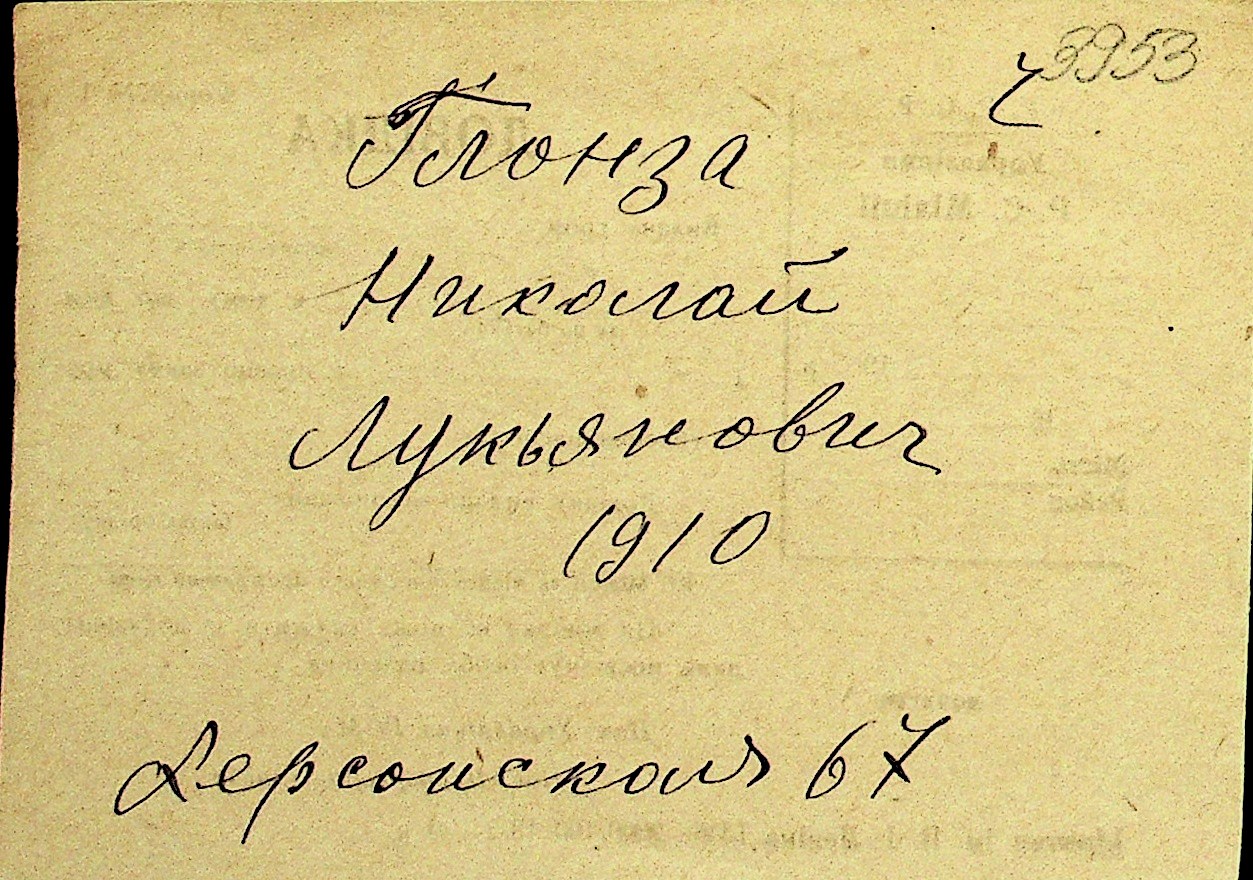 3953
Глонза
Николай
Лукьянович
1910
Херсонская 67